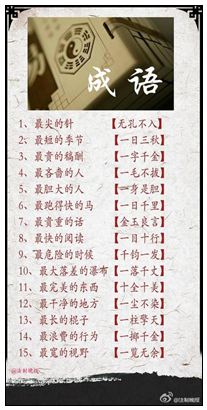 成语
1、最尖的针 【无孔不入】
2、最短的季节 【一日三秋】
3、最贵的稿酬 【一字千金】
4、最吝啬的人 【一毛不拔】
5、最胆大的人 【一身是胆】
6、最跑得快的马 【一日千里】
7、最贵重的话 【金玉良言】
8、最快的阅读 【一目十行】
9、最危险的时候 【千钧一发】
10、最大落差的瀑布【一落千丈】
11、最完美的东西 【十全十美】
12、最干净的地方 【一尘不染】
13、最长的棍子 【一柱擎天】
14、最浪费的行为 【一掷千金】
15、最宽的视野 【一览无余】
@法制晚报
@法制晚报